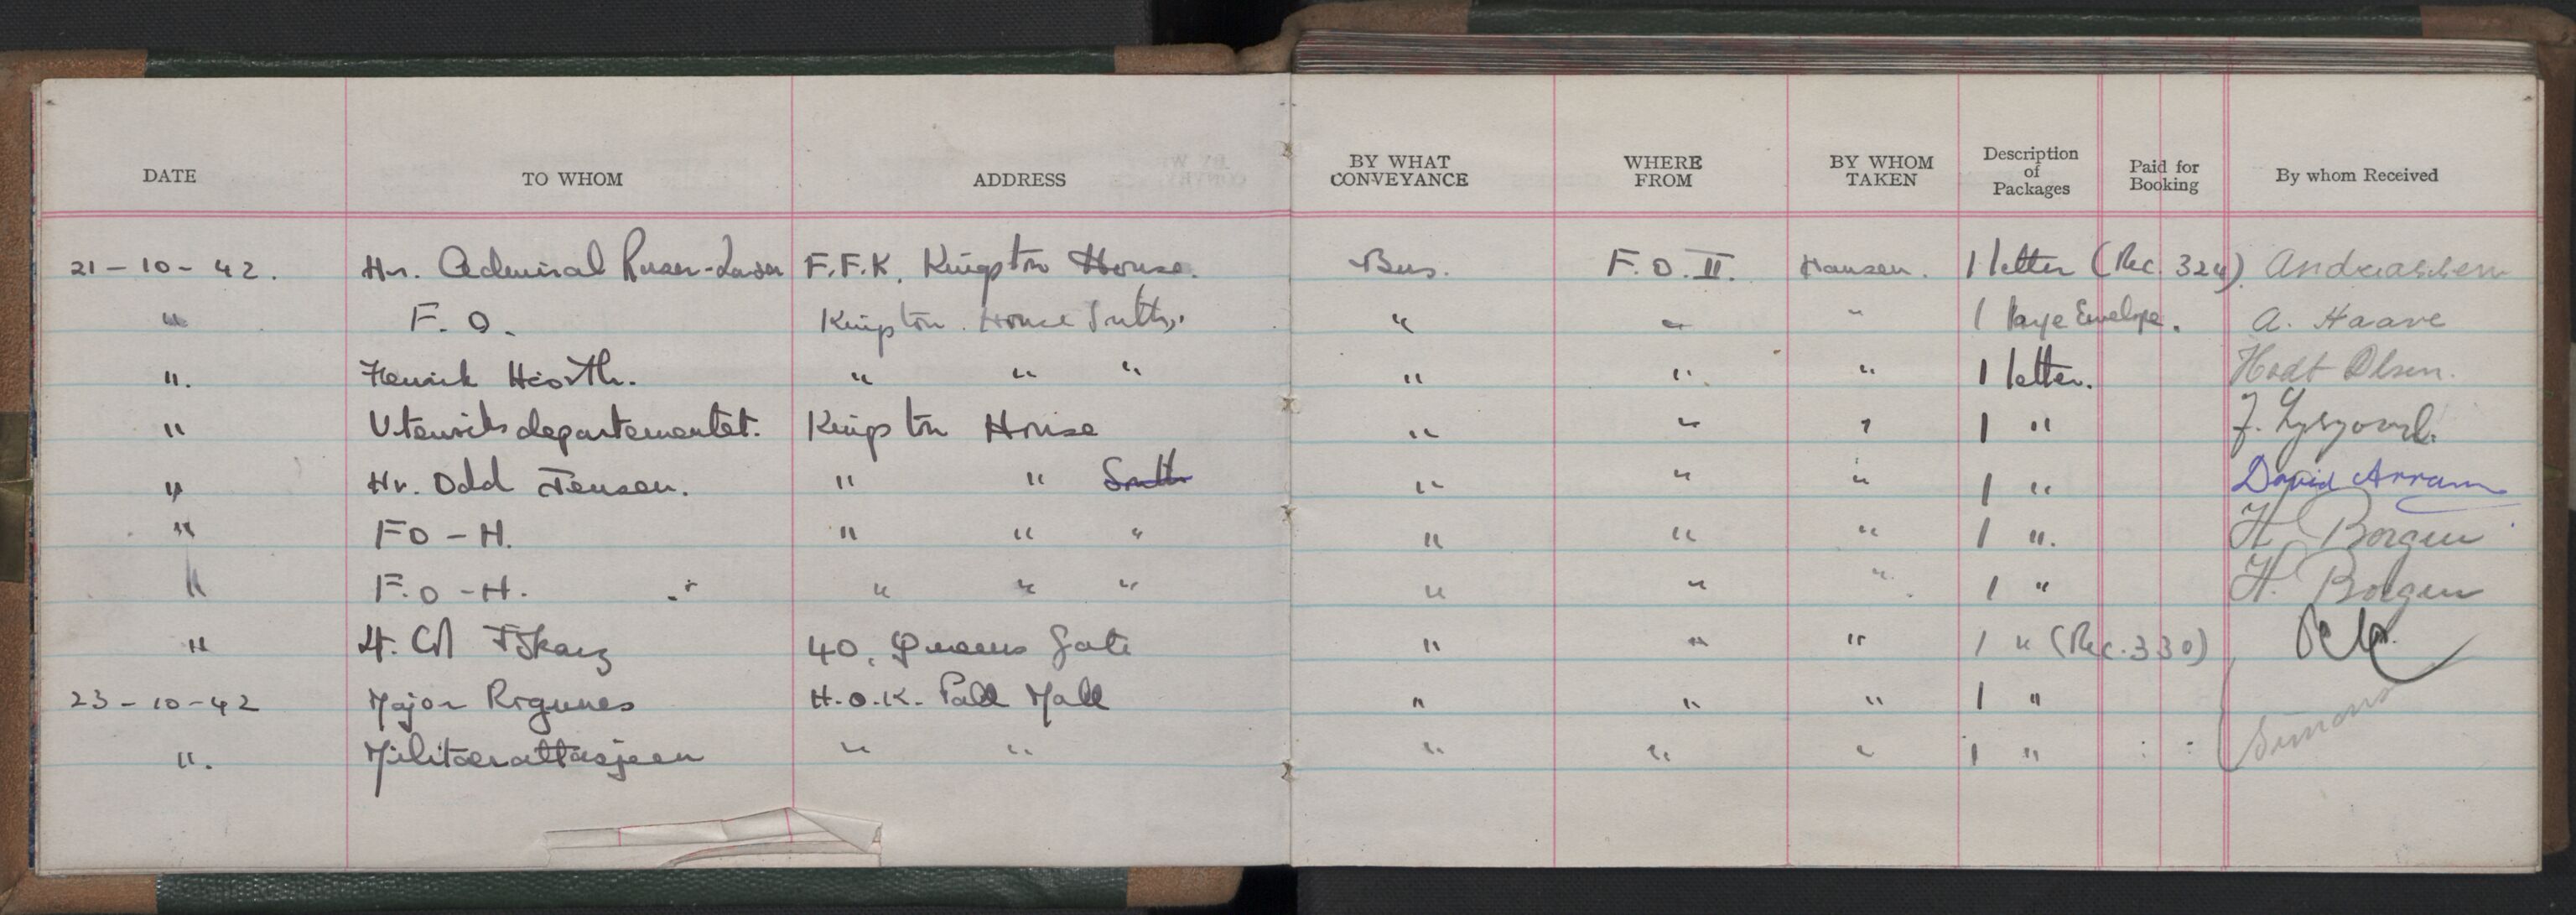 DATE TO WHOM ADDRESS BY WHAT CONVEYANCE WHERE FROM BY WHOM TAKEN Description of Packages Paid for Booking By whom Received
21-10-42. Hr. Admiral F.F.K. Kingston House. Bus. F.O. II. Hansen. 1 letter (Rec. 324). Andreassen
" F.O. Kingston House South. " " " 1 large Envelope. A. Haave
". Henrik Hiorth. " " " " " " 1 letter. Hodt Olsen.
" Utenriksdepartementet. Kingston House " " " 1 "
" Hr. Odd Jensen. " " South " " " 1 " David Arram
" FO-H. " " " " " " 1 ". H Borgen
" F.O-H. " " " " " " 1 " H. Borgen
" 40, Queens Gate " " " 1 " (Rec. 330)
23-10-42 Major Ragunes H.O.K. Pall Mall " " " 1 " Simons
". Militærattasjeen " " " " " 1 "